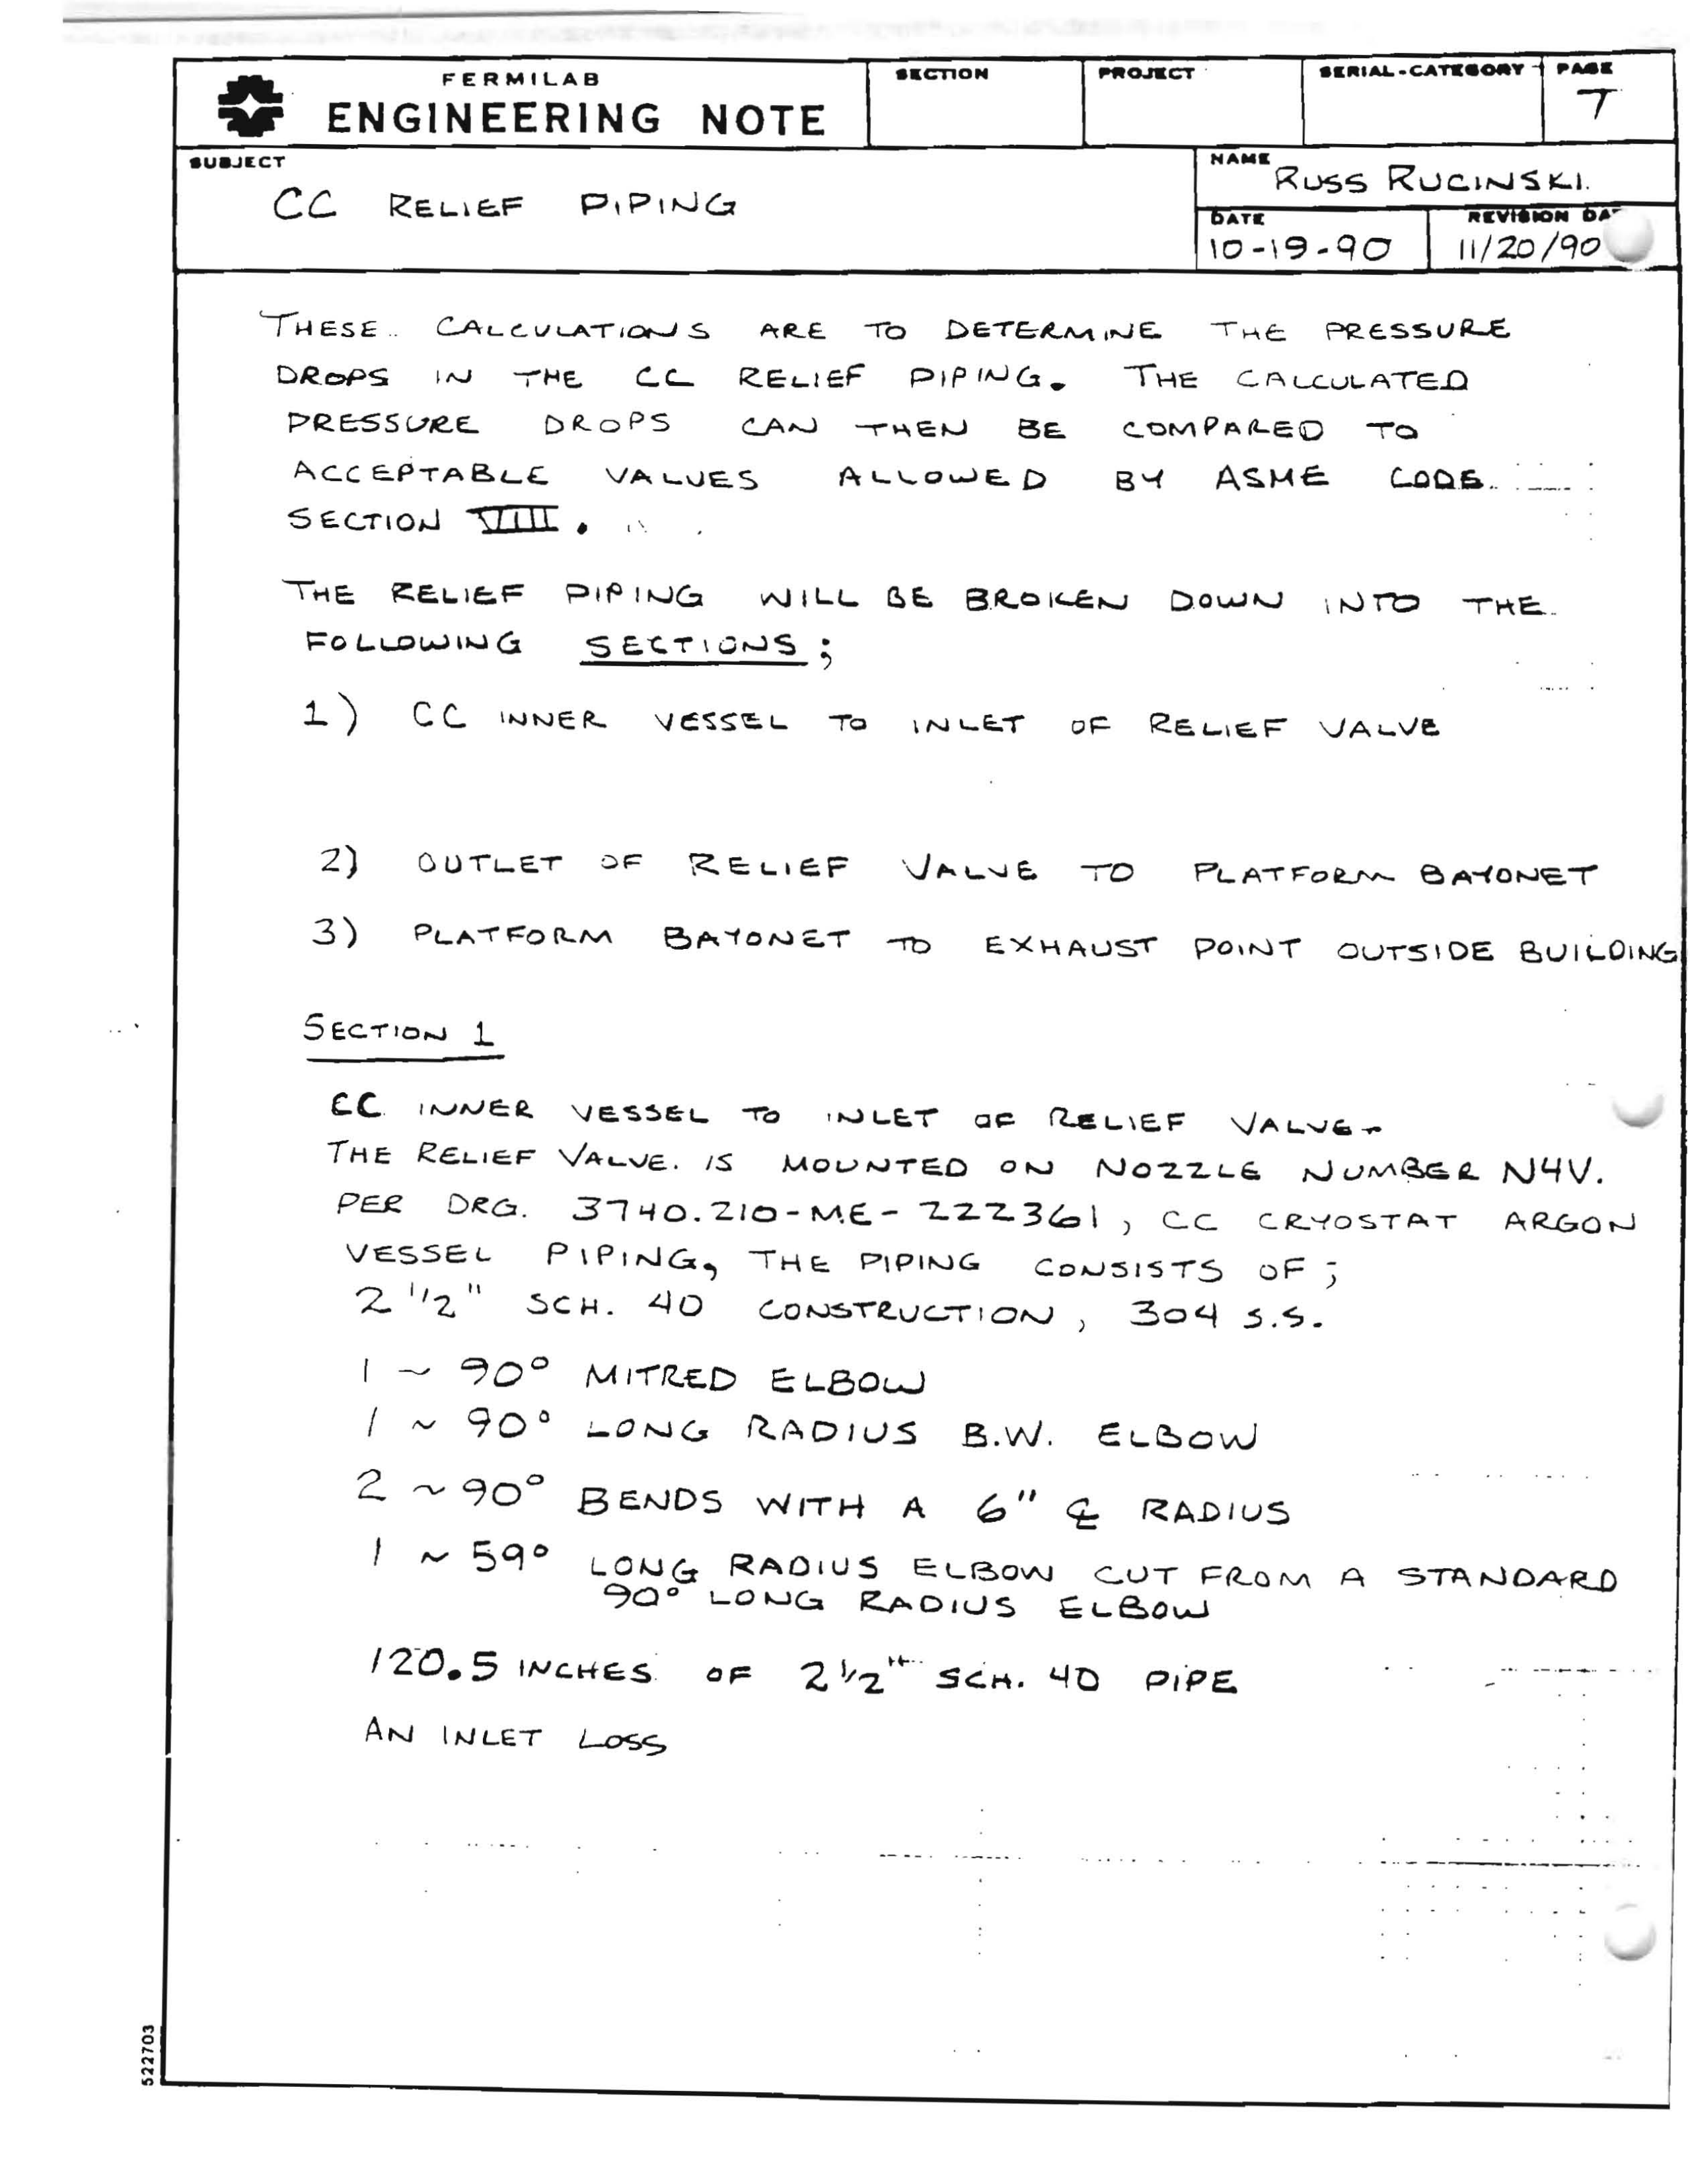 FERMILAB
ENGINEERING NOTE
SECTION
PROJECT
SERIAL-CATEGORY
PAGE
7
SUBJECT
CC RELIEF PIPING
NAME
RUSS RUCINSKI
DATE
10-19-90
REVISION DA
11/20/90
THESE CALCULATIONS ARE TO DETERMINE THE PRESSURE
DROPS IN THE CC RELIEF PIPING. THE CALCULATED
PRESSURE DROPS CAN THEN BE COMPARED TO
ACCEPTABLE VALUES ALLOWED BY ASME CODE
SECTION VIII.
THE RELIEF PIPING WILL BE BROKEN DOWN INTO THE
FOLLOWING SECTIONS;
1) CC INNER VESSEL TO INLET OF RELIEF VALVE
2) OUTLET OF RELIEF VALVE TO PLATFORM BAYONET
3) PLATFORM BAYONET TO EXHAUST POINT OUTSIDE BUILDING
SECTION 1
CC INNER VESSEL TO INLET OF RELIEF VALVE-
THE RELIEF VALVE IS MOUNTED ON NOZZLE NUMBER N4V.
PER DRG. 3740.210-ME-222361, CC CRYOSTAT ARGON
VESSEL PIPING, THE PIPING CONSISTS OF;
2 1/2" SCH. 40 CONSTRUCTION, 304 S.S.
1 ~ 90° MITRED ELBOW
1 ~ 90° LONG RADIUS B.W. ELBOW
2 ~ 90° BENDS WITH A 6" ℄ RADIUS
1 ~ 59° LONG RADIUS ELBOW CUT FROM A STANDARD
90° LONG RADIUS ELBOW
120.5 INCHES OF 2 1/2" SCH. 40 PIPE
AN INLET LOSS
522703